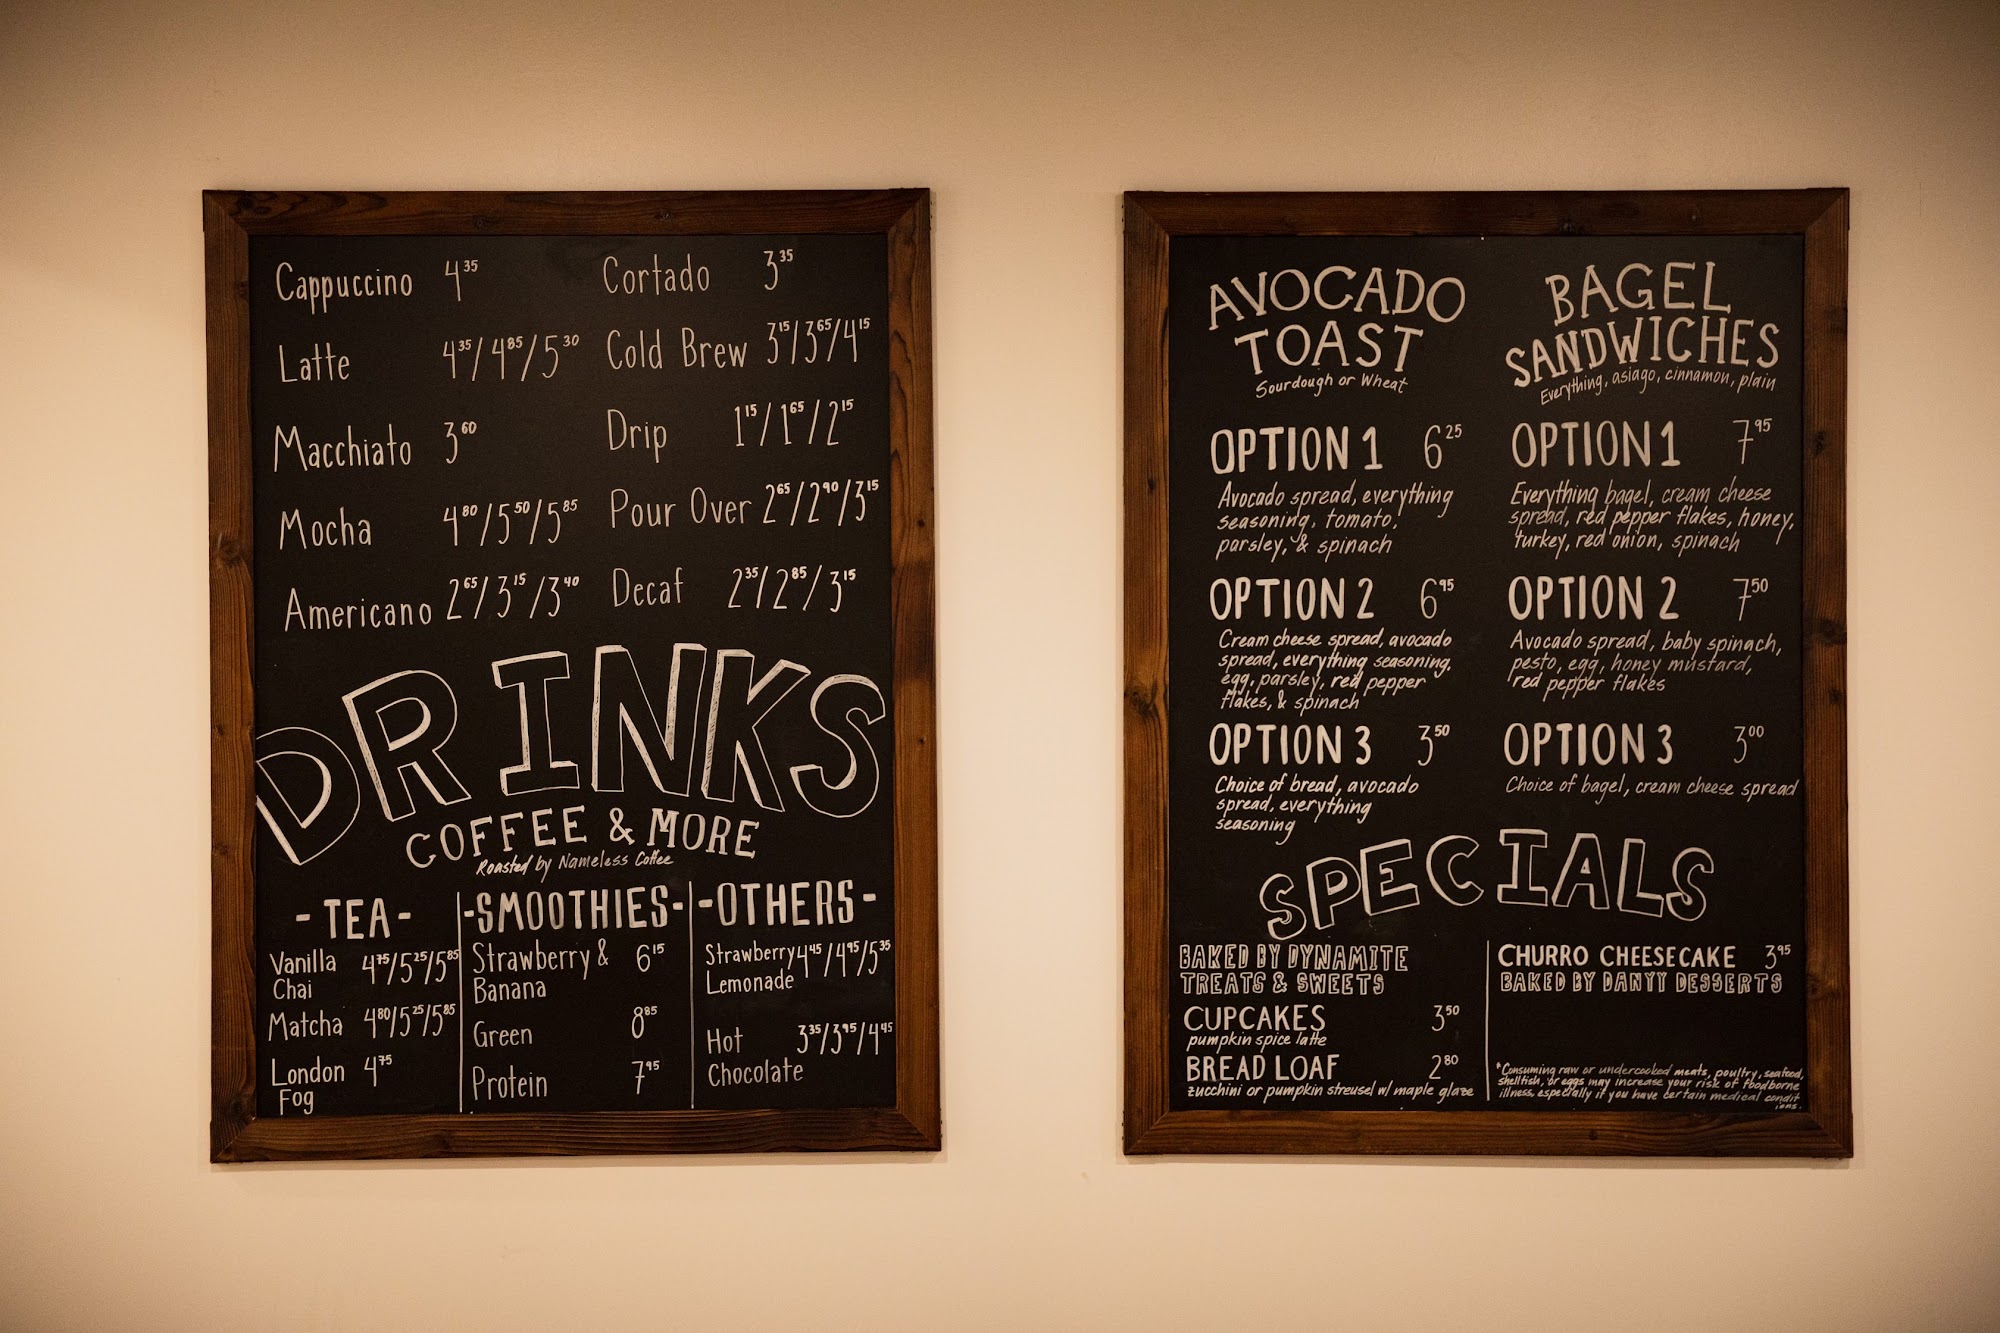 Cappuccino 4.35
Latte 4.35/4.85/5.30
Macchiato 3.60
Mocha 4.80/5.50/5.85
Americano 2.65/3.15/3.40
Cortado 3.35
Cold Brew 3.15/3.65/4.15
Drip 1.15/1.65/2.15
Pour Over 2.65/2.90/3.15
Decaf 2.35/2.85/3.15
DRINKS
COFFEE & MORE
Roasted by Nameless Coffee
-TEA-
Vanilla 4.75/5.25/5.85
Chai
Matcha 4.80/5.25/5.85
London 4.75
Fog
-SMOOTHIES-
Strawberry & 6.15
Banana
Green 8.85
Protein 7.95
-OTHERS-
Strawberry 4.45/4.95/5.35
Lemonade
Hot 3.35/3.95/4.45
Chocolate
AVOCADO
TOAST
Sourdough or Wheat
OPTION 1 6.25
Avocado spread, everything
seasoning, tomato,
parsley, & spinach
OPTION 2 6.95
Cream cheese spread, avocado
spread, everything seasoning,
egg, parsley, red pepper
flakes, & spinach
OPTION 3 3.50
Choice of bread, avocado
spread, everything
seasoning
BAGEL
SANDWICHES
Everything, asiago, cinnamon, plain
OPTION 1 7.95
Everything bagel, cream cheese
spread, red pepper flakes, honey,
turkey, red onion, spinach
OPTION 2 7.50
Avocado spread, baby spinach,
pesto, egg, honey mustard,
red pepper flakes
OPTION 3 3.00
Choice of bagel, cream cheese spread
SPECIALS
BAKED BY DYNAMITE
TREATS & SWEETS
CUPCAKES 3.50
pumpkin spice latte
BREAD LOAF 2.80
zucchini or pumpkin streusel w/ maple glaze
CHURRO CHEESECAKE 3.95
BAKED BY DANYY DESSERTS
*Consuming raw or undercooked meats, poultry, seafood,
shellfish, or eggs may increase your risk of foodborne
illness, especially if you have certain medical condit
ions.